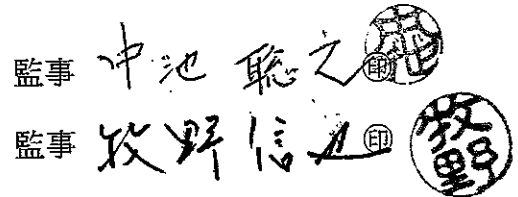 監事 中池聡之 ㊞
監事 牧野信也 ㊞ 牧野